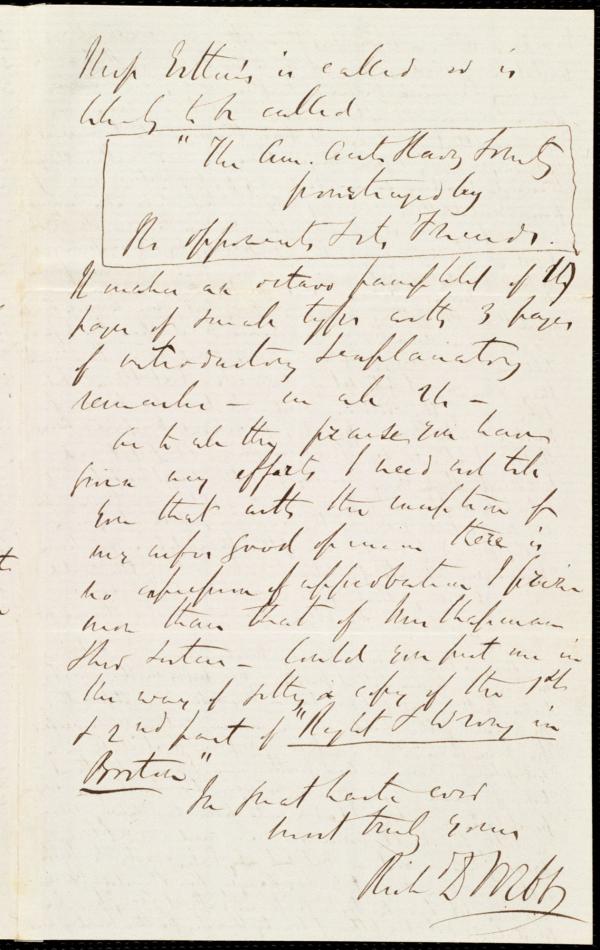 Miss Estlin's is called or is
likely to be called
"The Am. Anti Slavery Society
pourtrayed by
its opponents & its Friends.
It makes an octavo pamphlet of
pages of small type with 3 pages
of introductory & explanatory
remarks – in all –
As to all the praise you have
given my efforts I need not tell
you that with the exception of
my wife's good opinion there is
no expression of approbation I prize
more than that of Mrs Chapman
& her sisters – Could you put me in
the way of getting a copy of the 1st
& 2nd part of "Right & Wrong in
Boston"
In great haste ever
most truly yours
Richd D Webb